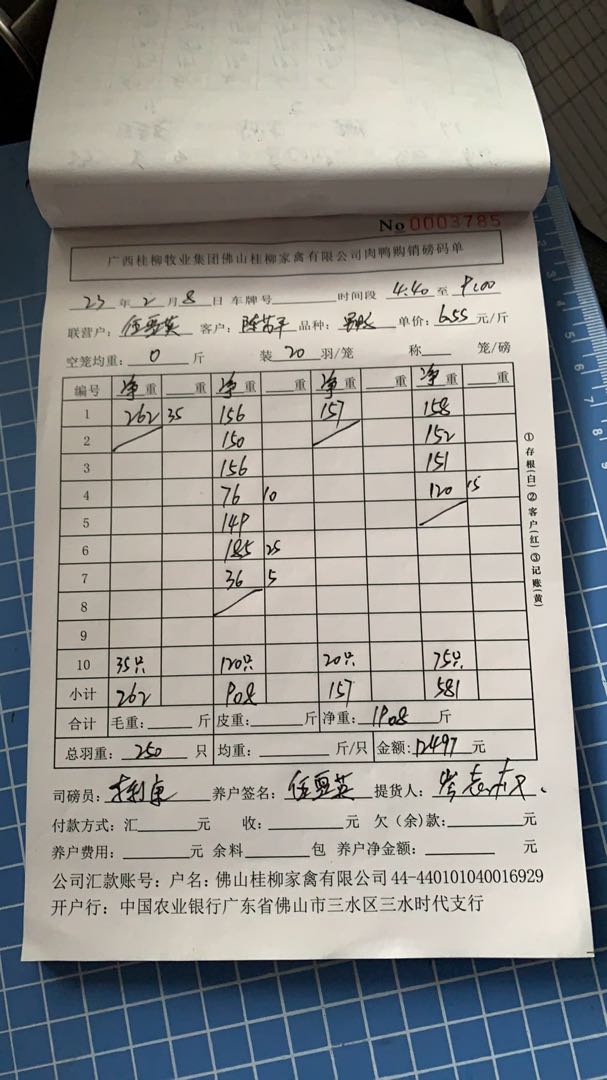 No 0003785
广西桂柳牧业集团佛山桂柳家禽有限公司肉鸭购销磅码单
23 年 2 月 8 日 车牌号 时间段 4:40 至 9:00
联营户: 客户: 品种: 单价: 6.55 元/斤
空笼均重: 0 斤 装 20 羽/笼 称 笼/磅
编号 净重 重 净重 重 净重 重 净重 重
1 262 35 156 157 158
2 150 152
3 156 151
4 76 10 120 15
5 149
6 185 25
7 36 5
8
9
10 35只 120只 20只 75只
小计 262 908 157 581
合计 毛重: 斤 皮重: 斤 净重: 1908 斤
总羽重: 250 只 均重: 斤/只 金额: 12497 元
司磅员: 养户签名: 提货人:
付款方式: 汇 元 收: 元 欠(余)款: 元
养户费用: 元 余料 包 养户净金额: 元
公司汇款账号: 户名: 佛山桂柳家禽有限公司 44-440101040016929
开户行: 中国农业银行广东省佛山市三水区三水时代支行
①存根(白)②客户(红)③记账(黄)